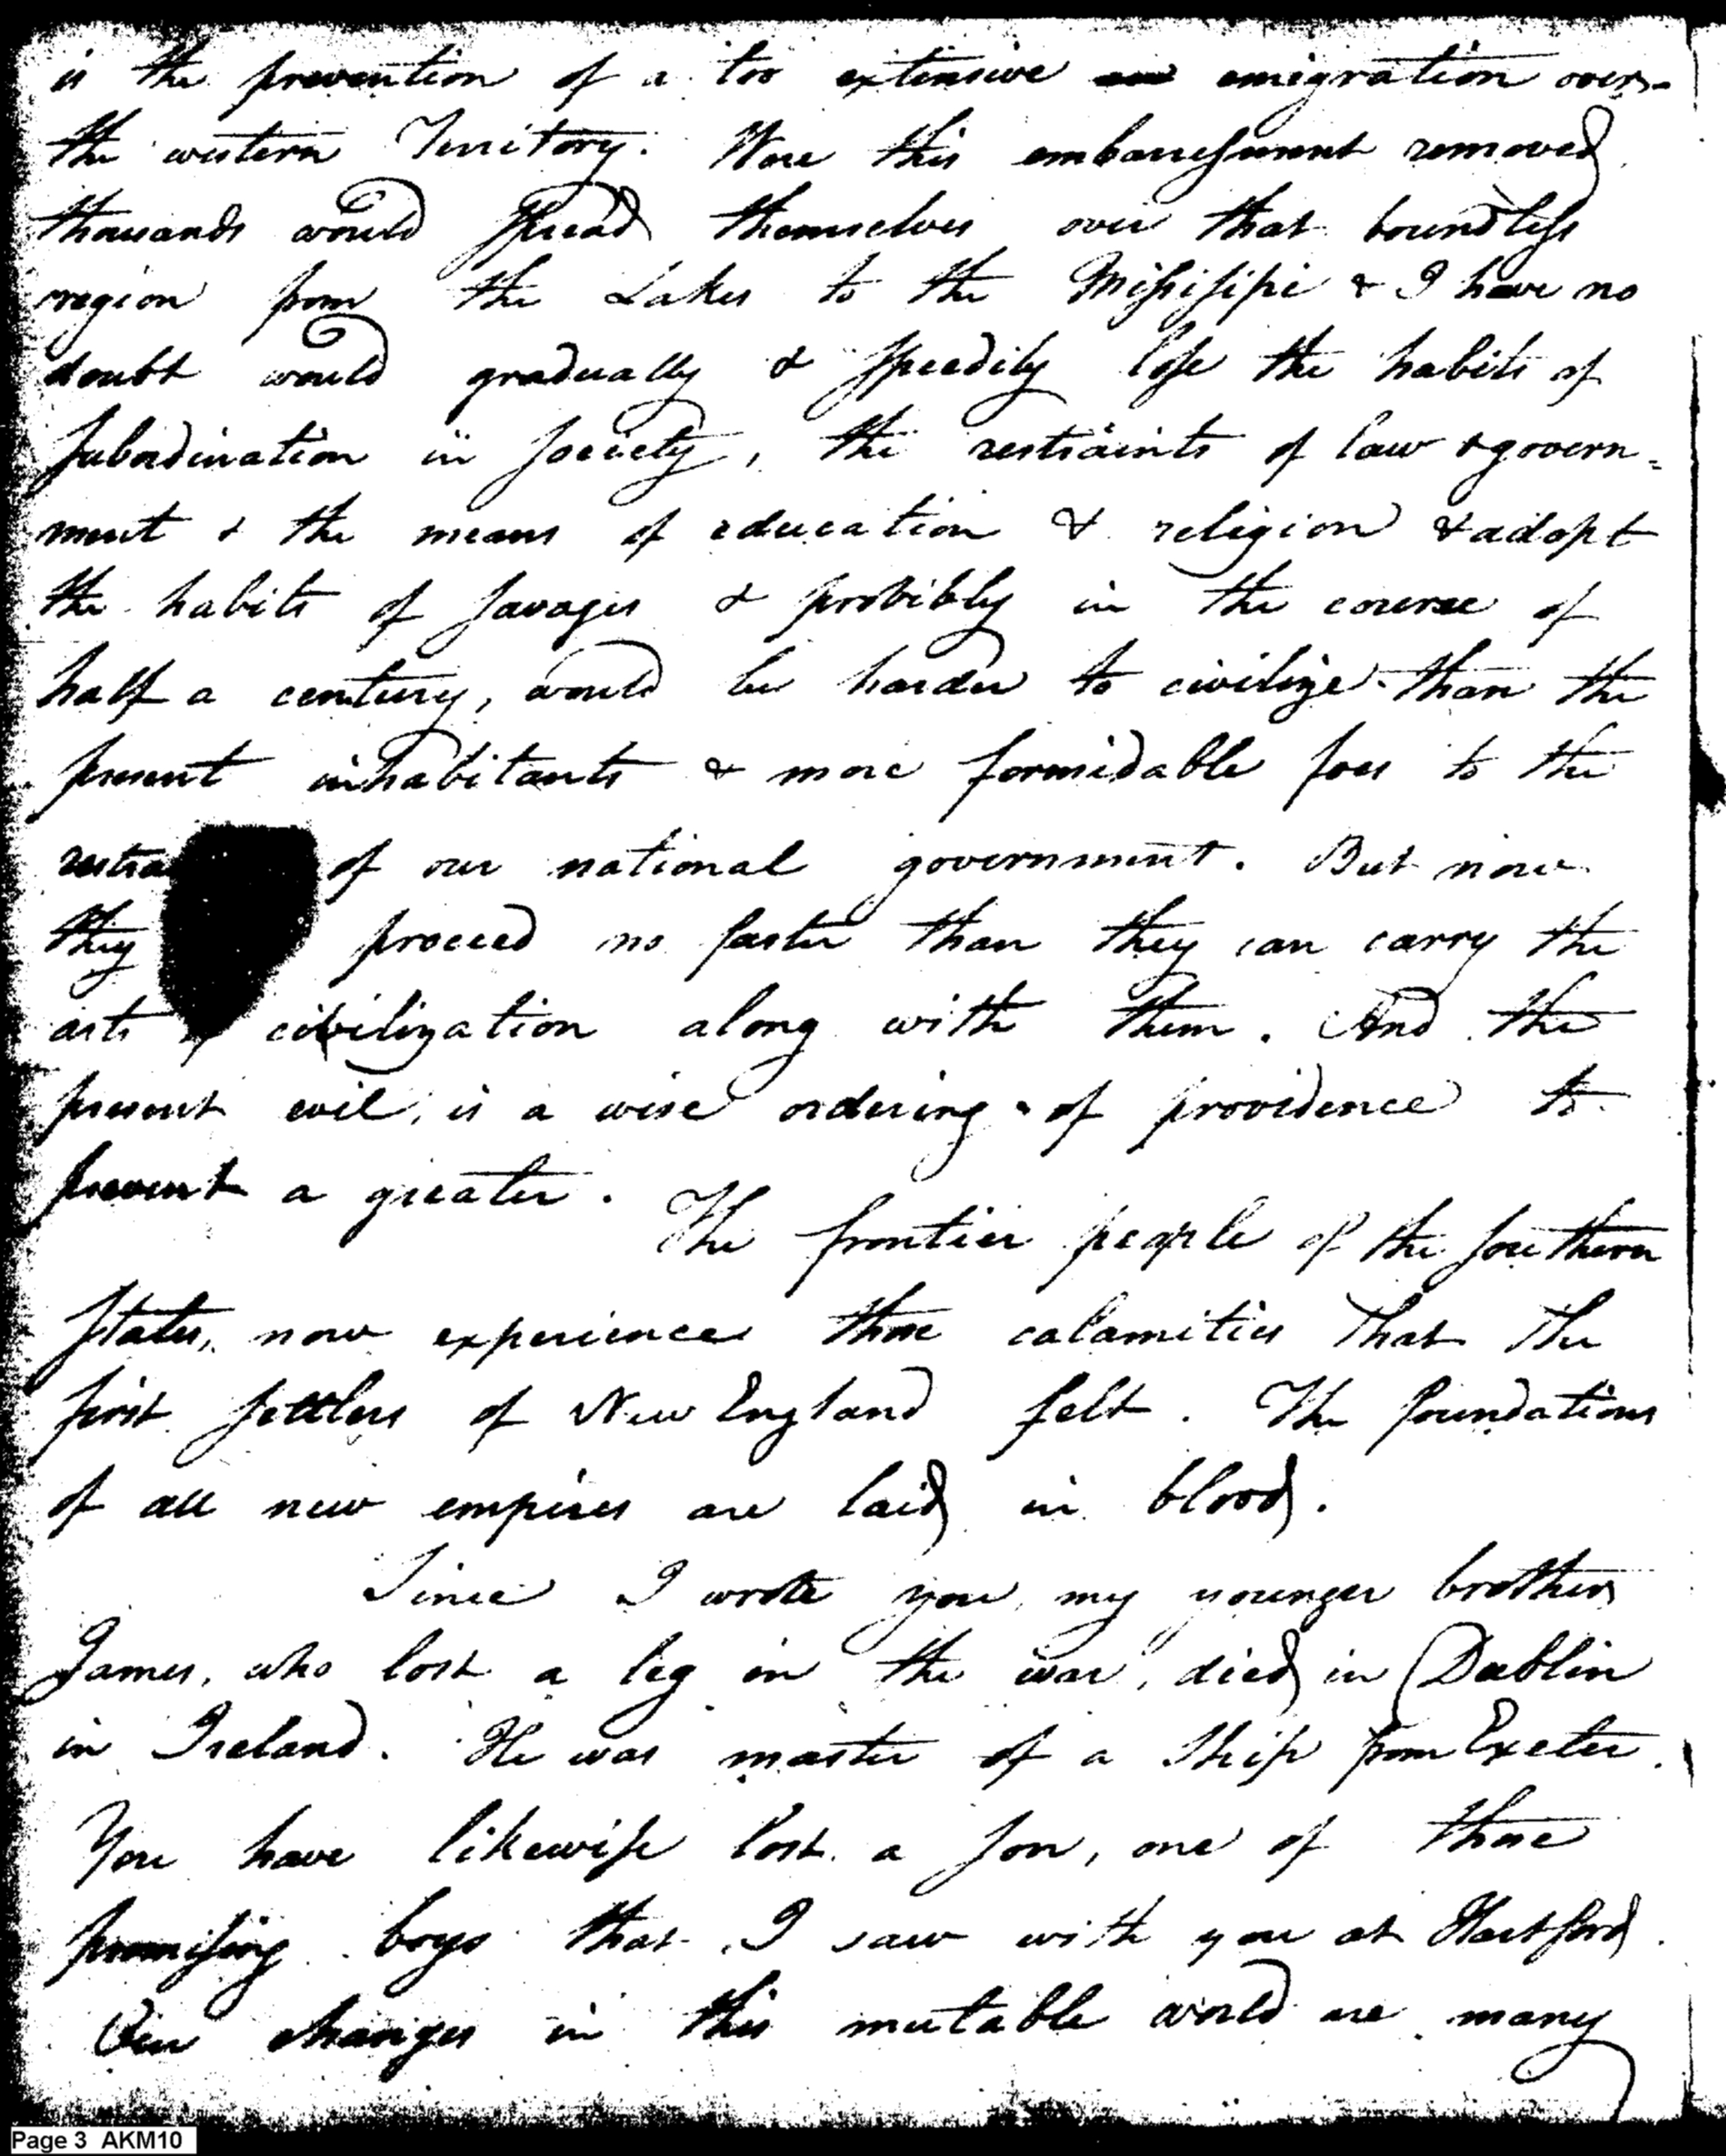 is the prevention of a too extensive emigration over
the western Territory. Were this embarrassment removed
thousands would spread themselves over that boundless
region from the Lakes to the Missisippi & I have no
doubt would gradually & speedily lose the habits of
subordination in society, the restraints of law & govern=
ment & the means of education & religion & adopt
the habits of savages & probibly in the course of
half a century, would be harder to civilize than the
present inhabitants & more formidable foes to the
of our national government. But now
they proceed no faster than they can carry the
arts of civilization along with them. And the
present evil, is a wise ordering of providence to
prevent a greater.
The frontier people of the southern
States, now experience those calamities that the
first settlers of New England felt. The foundations
of all new empires are laid in blood.
Since I wrote you my younger brother
James, who lost a leg in the war, died in Dublin
in Ireland. He was master of a ship from Exeter.
You have likewise lost a son, one of those
promising boys that I saw with you at Hartford.
Our changes in this mutable world are many
Page 3 AKM10